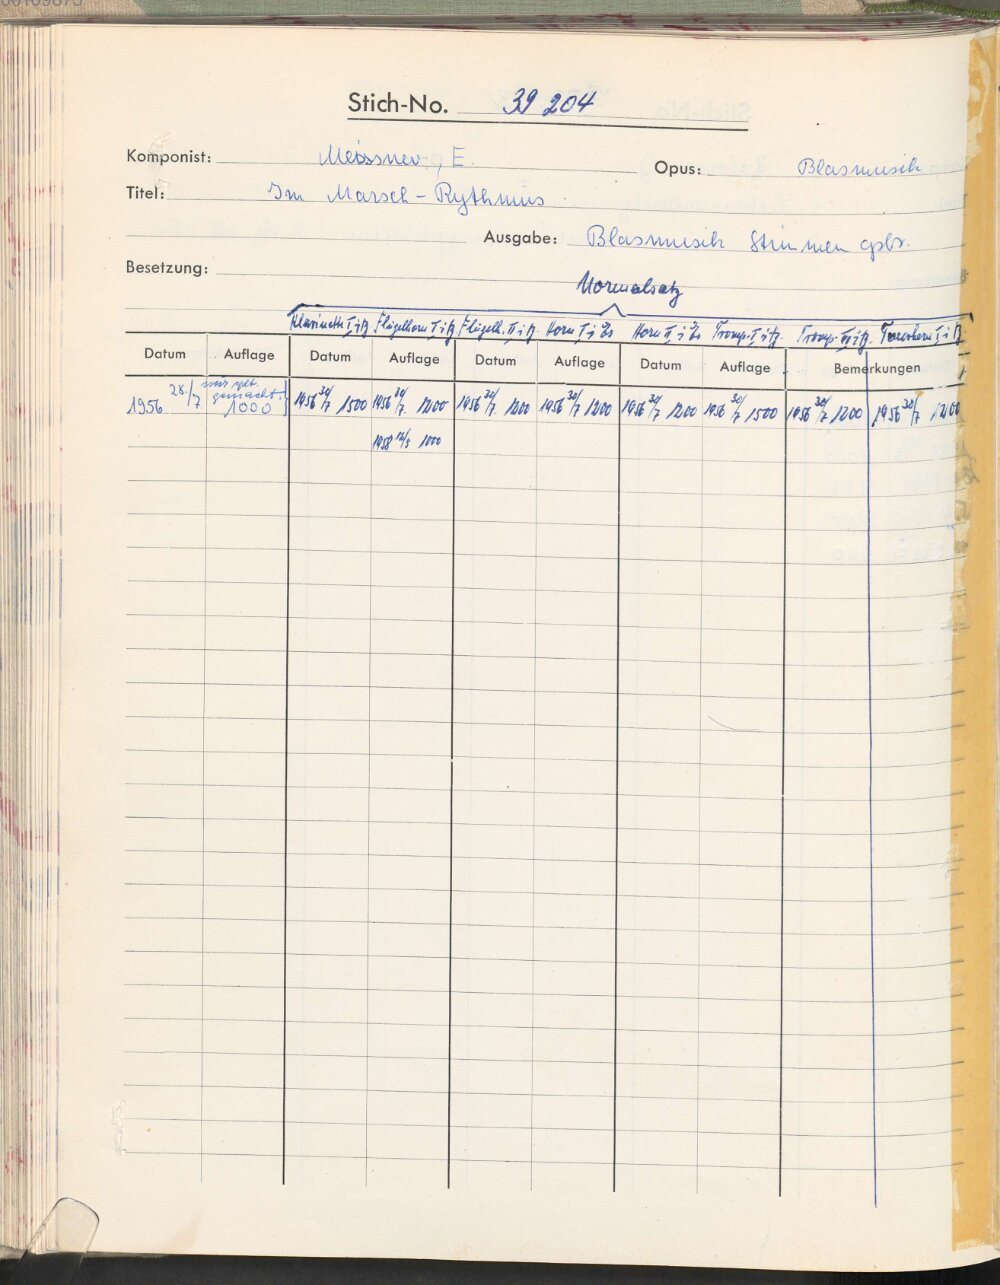 Stich-No. 39 204
Komponist: Meissner, E. Opus: Blasmusik
Titel: Im Marsch-Rythmus
Ausgabe: Blasmusik Stimmen gebr.
Besetzung:
Normalsatz
Klarinette I i B Flügelhorn I i B Flügelh. II i B. Horn I i Es Horn II i Es Tromp. I i B. Tromp. III i B. Tenorhorn I i B
Datum Auflage Datum Auflage Datum Auflage Datum Auflage Bemerkungen
1956 28./7 nur gemacht. 1000 1956 30/7 1500 1956 30/7 1200 1956 30/7 1200 1956 30/7 1200 1956 30/7 1200 1956 30/7 1500 1956 30/7 1200 1956 30/7 1200
1958 12/5 1000